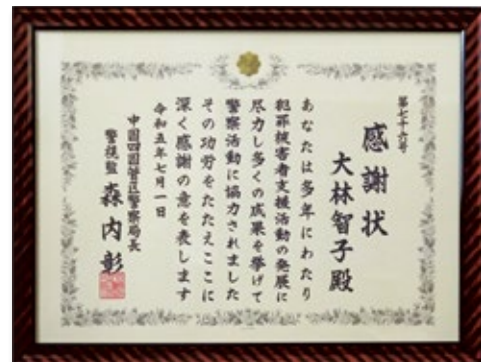 第七十六号
感謝状
大林智子殿
あなたは多年にわたり
犯罪被害者支援活動の発展に
尽力し多くの成果を挙げて
警察活動に協力されました
その功労をたたえここに
深く感謝の意を表します
令和五年七月一日
中国四国管区警察局長
警視監 森内彰